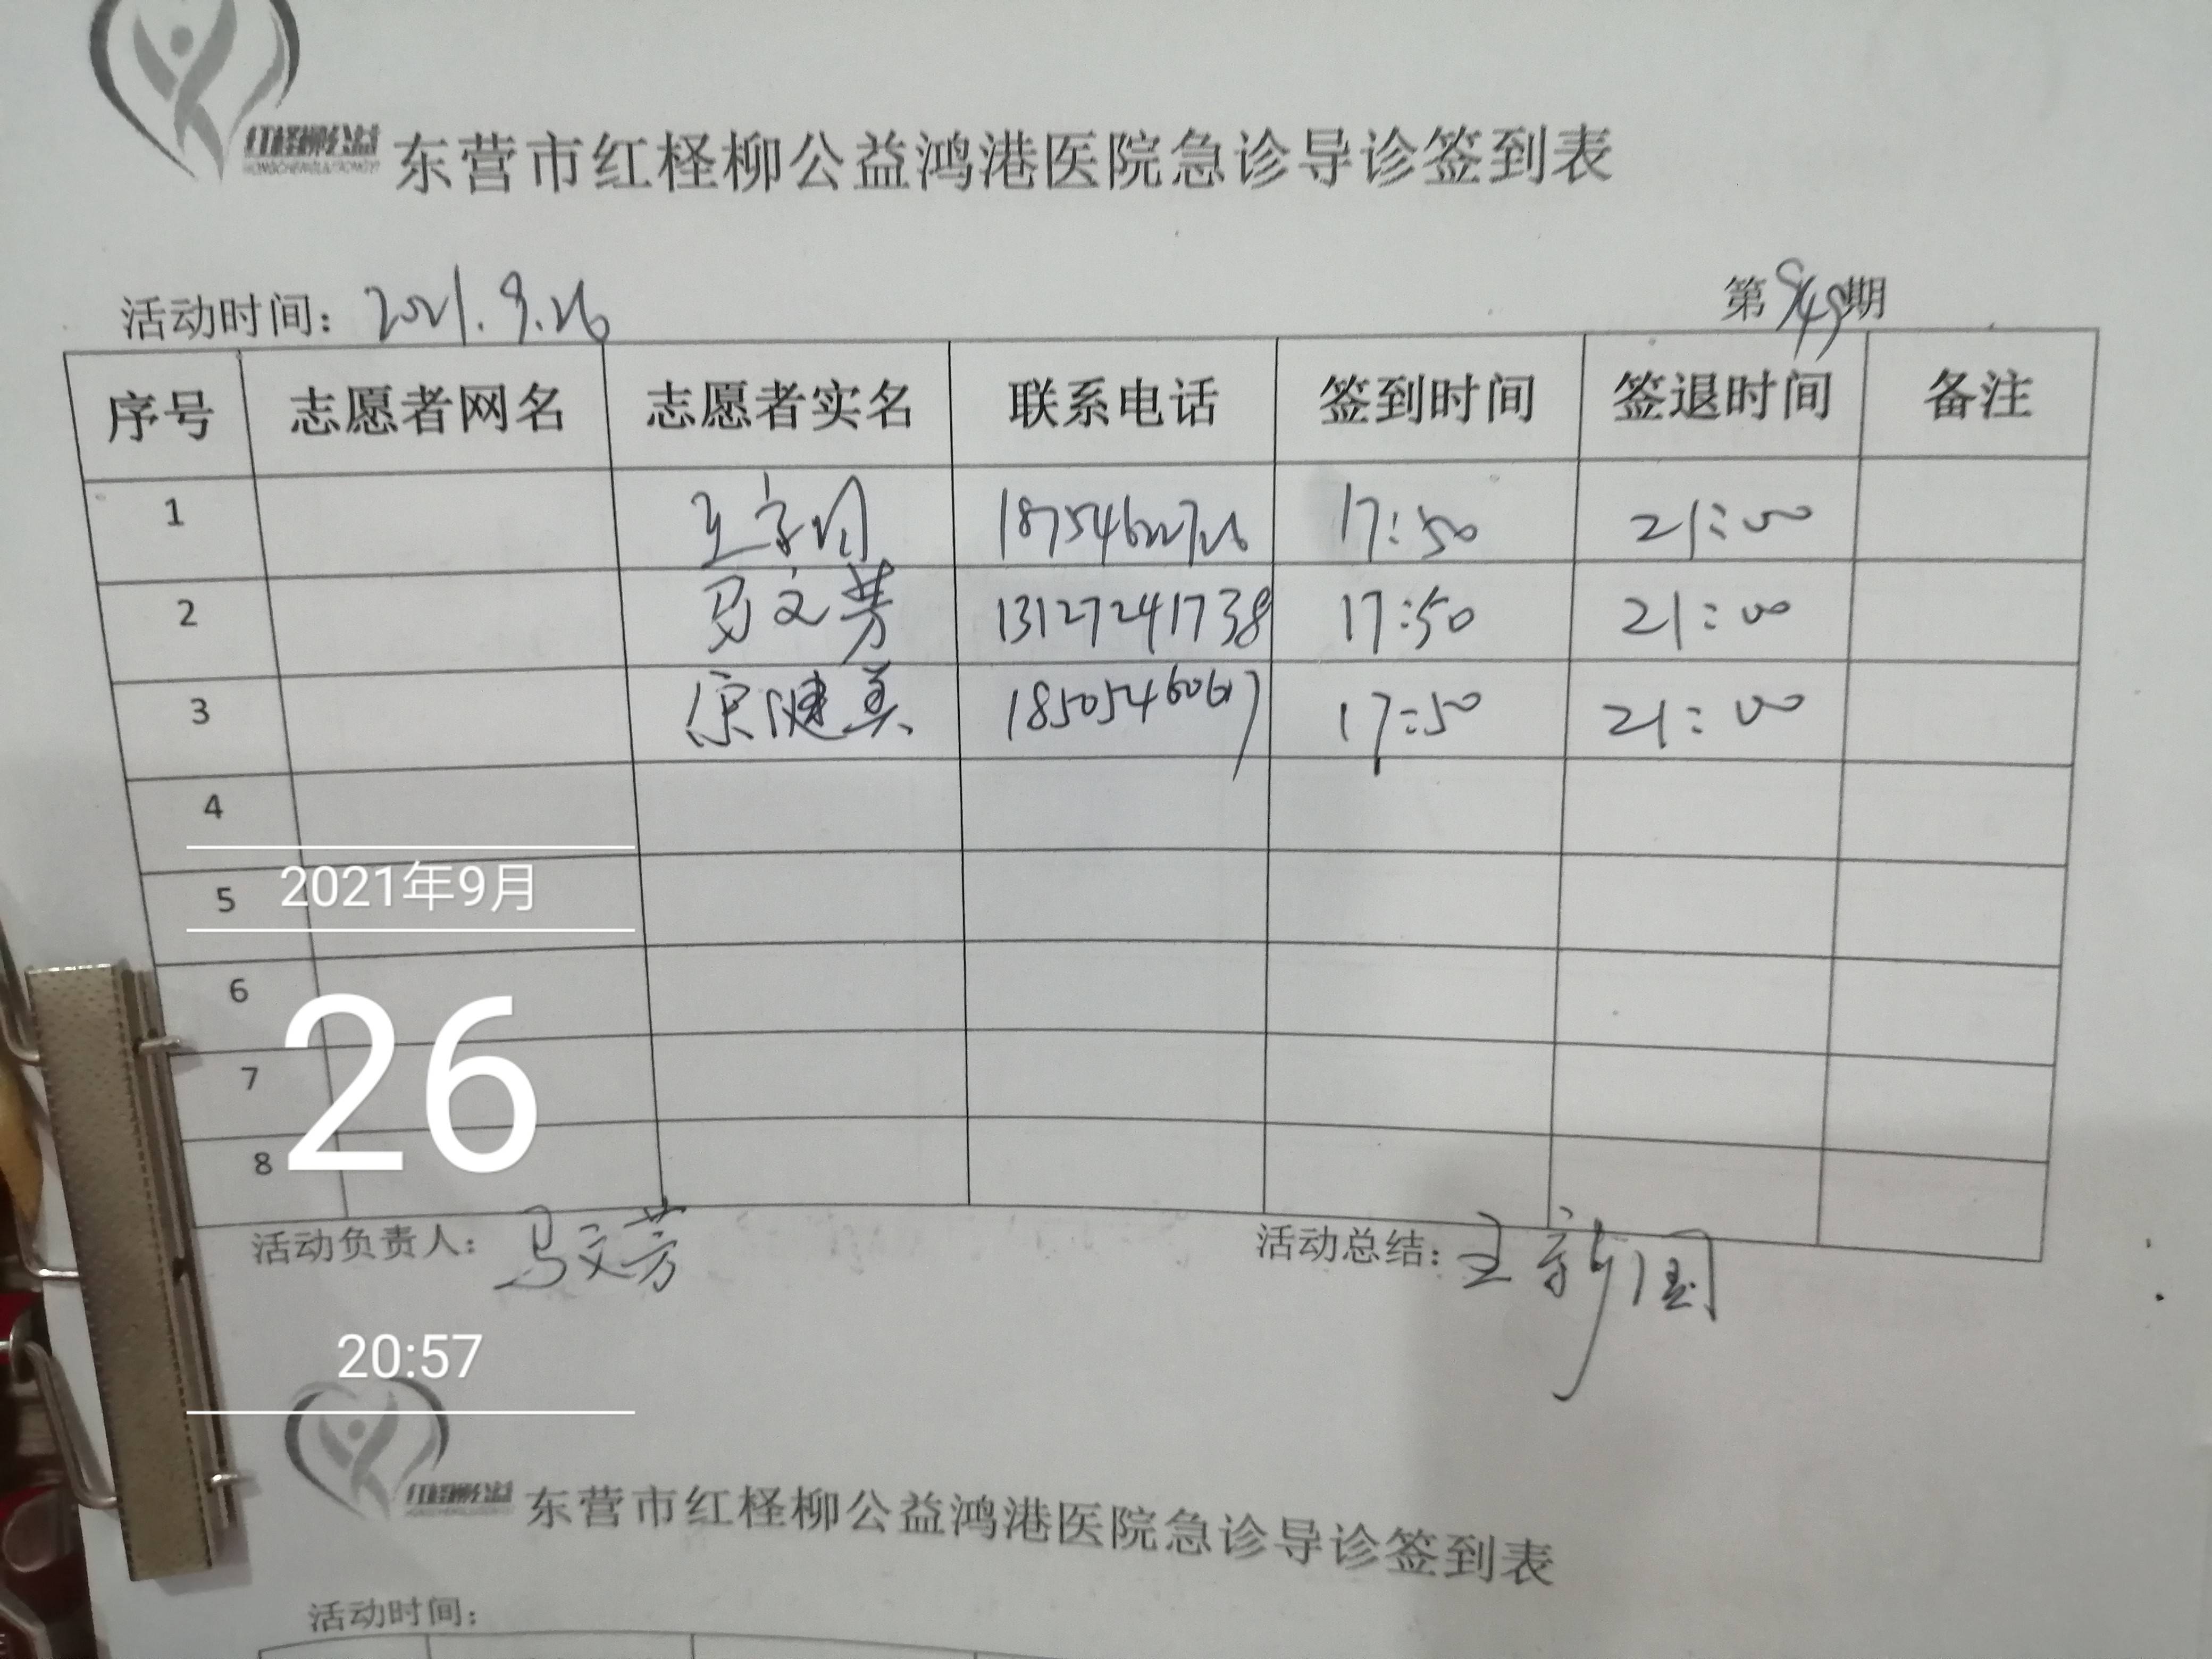 红柽柳公益
东营市红柽柳公益鸿港医院急诊导诊签到表
活动时间： 2021.9.26 第949期
序号 志愿者网名 志愿者实名 联系电话 签到时间 签退时间 备注
1 17:50 21:00
2 马文芳 13127241738 17:50 21:00
3 健美 18505460617 17:50 21:00
4
5
6
7
8
2021年9月
26
20:57
活动负责人： 马文芳 活动总结：
红柽柳公益
东营市红柽柳公益鸿港医院急诊导诊签到表
活动时间：